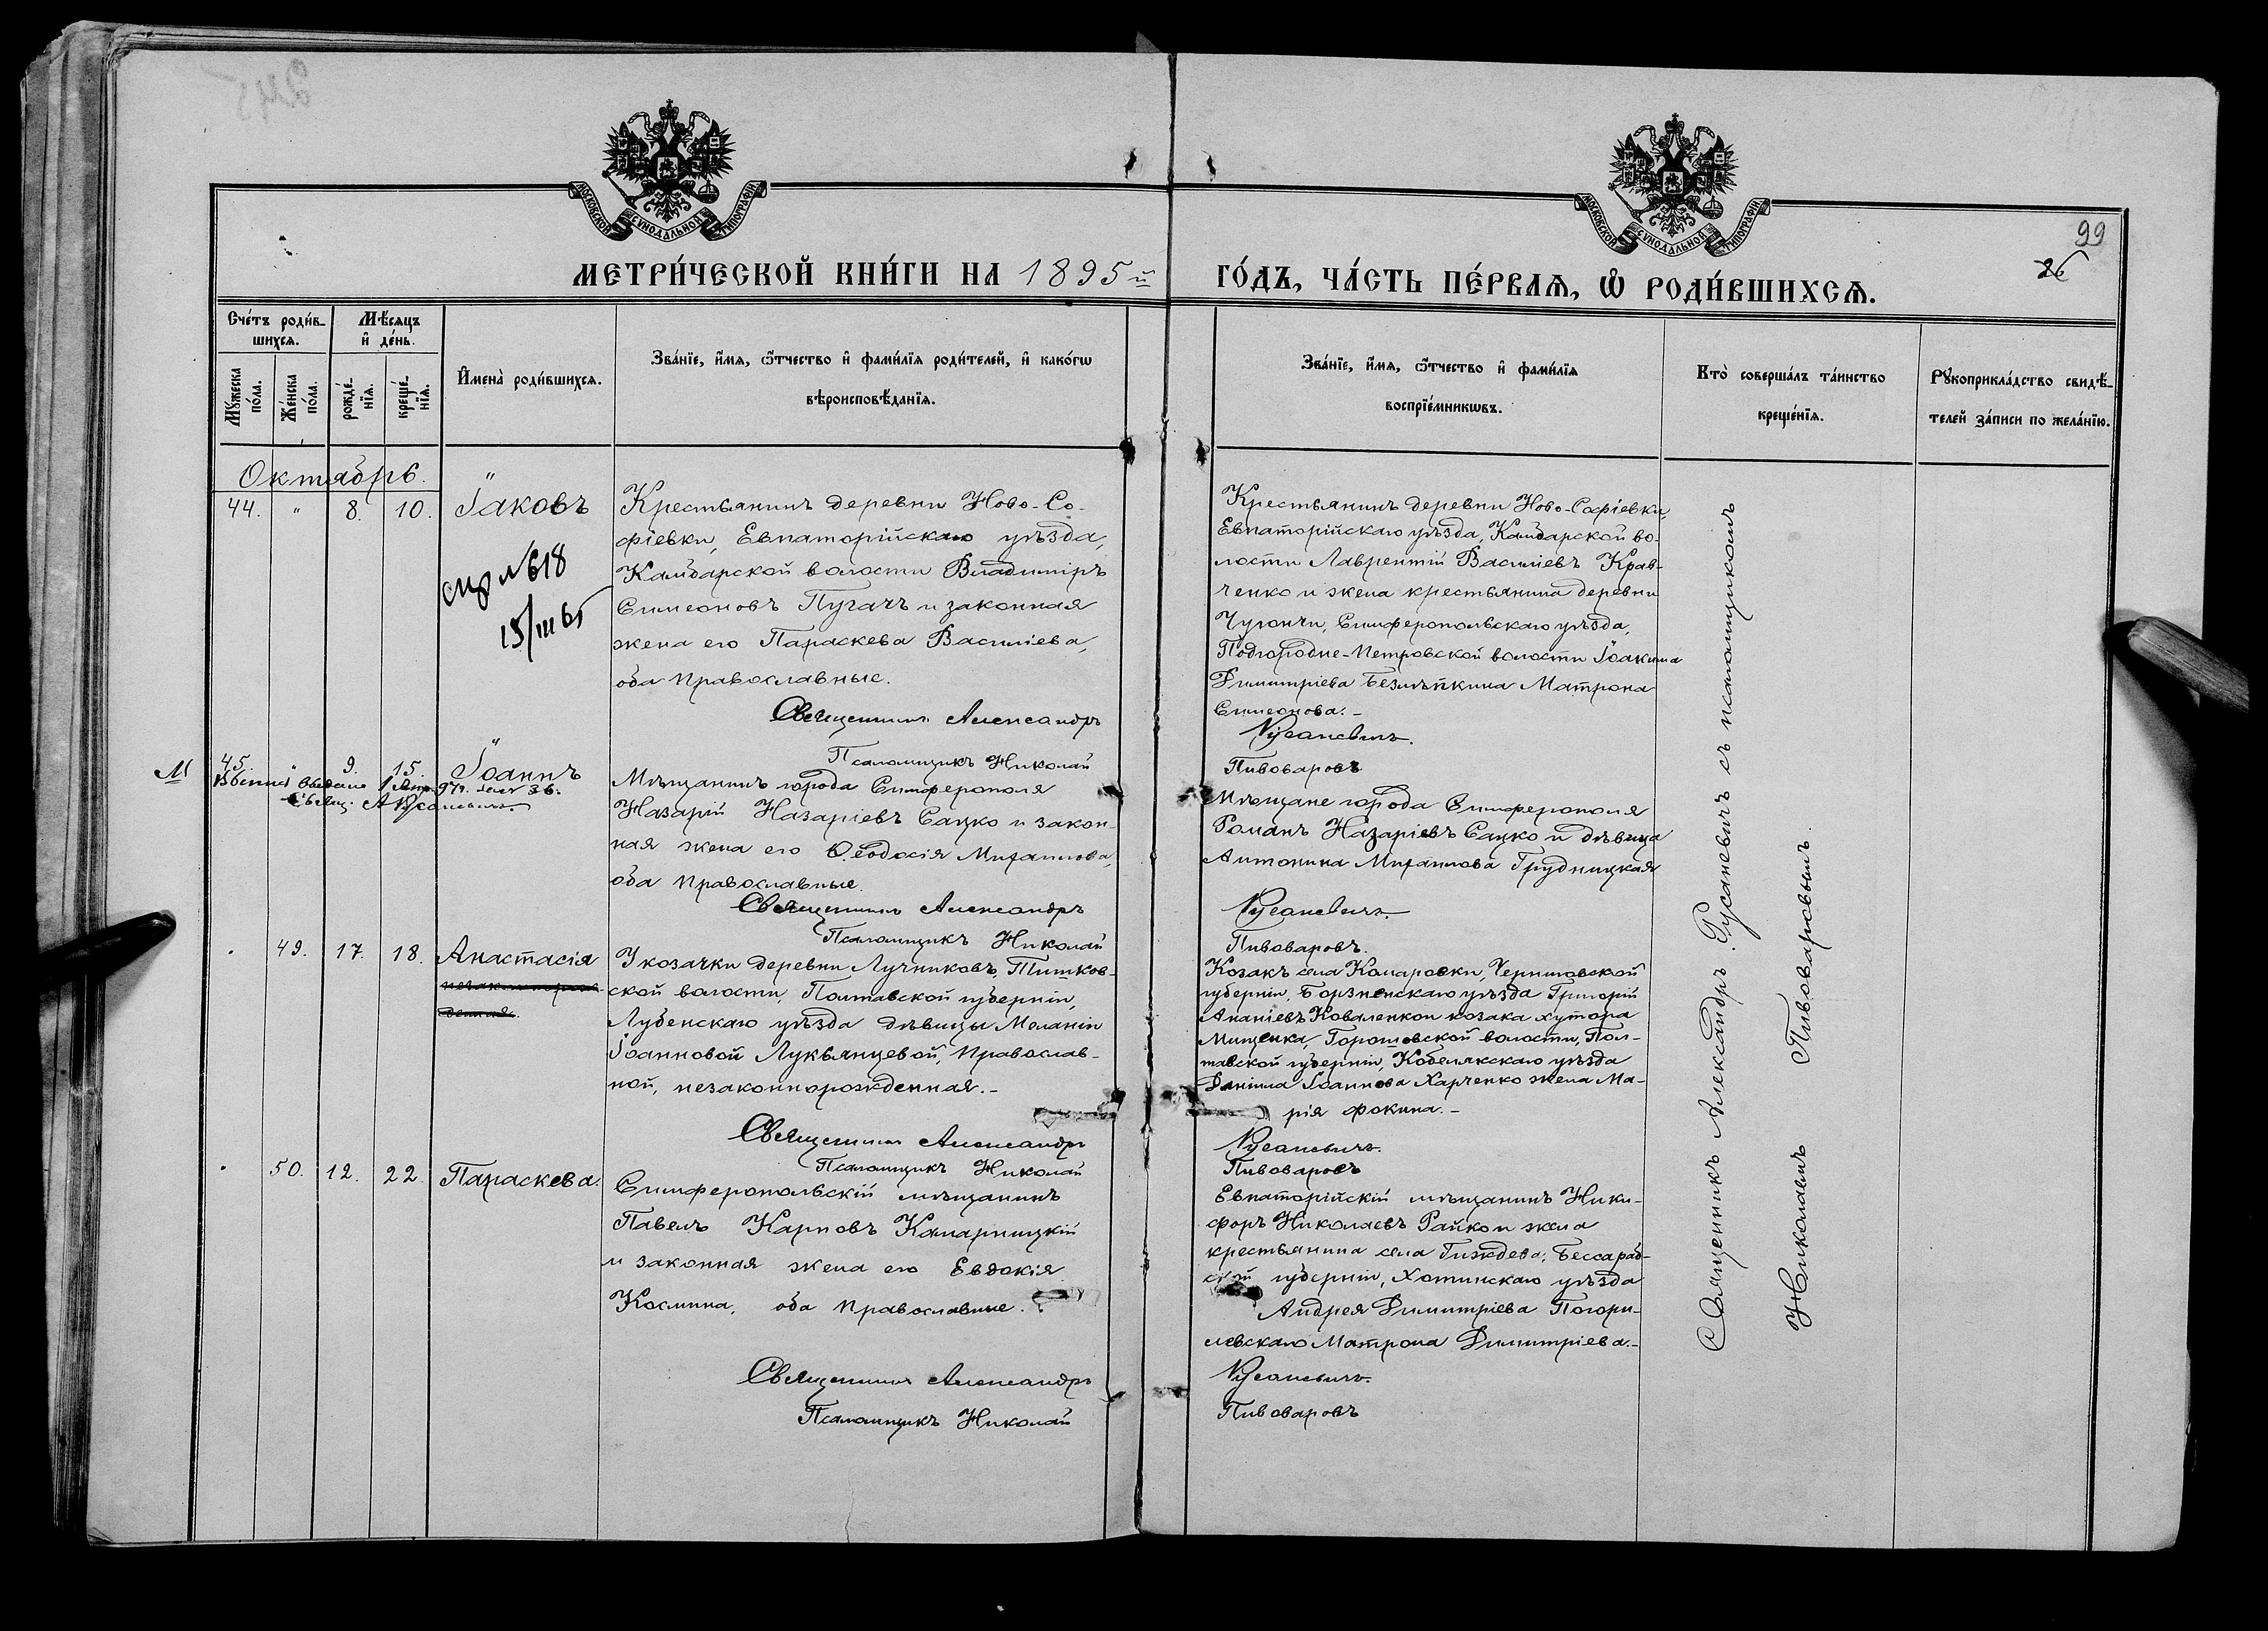 МОСКОВСКОЙ СУНОДАЛЬНОЙ ТИПОГРАФИИ
МОСКОВСКОЙ СУНОДАЛЬНОЙ ТИПОГРАФИИ
99
26
МЕТРИ́ЧЕСКОЙ КНИ́ГИ НА 1895 й
ГО́ДЪ, ЧА́СТЬ ПЕ́РВАѦ, Ѡ РОДИ́ВШИХСѦ.
Сче́тъ роди́в-
шихсѧ.
Мѣ́сѧцъ
и҆ де́нь.
Мꙋ́жеска
по́ла.
Же́нска
по́ла.
рожде́-
нїѧ.
креще́-
нїѧ.
И҆мена̀ роди́вшихсѧ.
Зва́нїе, и҆́мѧ, ѻ҆́тчество и҆ фами́лїѧ роди́телей, и҆ како́гѡ
вѣроисповѣ́данїѧ.
Зва́нїе, и҆́мѧ, ѻ҆́тчество и҆ фами́лїѧ
воспрїе́мникѡвъ.
Кто̀ соверша́лъ та́инство
креще́нїѧ.
Рꙋкоприкла́дство свидѣ́-
телей за́писи по жела́нїю.
Октябрь.
44. " 8. 10. Іаковъ
спр № 618
15/III 65
Крестьянинъ деревни Ново-Со-
фіевки, Евпаторійскаго уѣзда,
Камбарской волости Владиміръ
Симеоновъ Пугачъ и законная
жена его Параскева Василіева,
оба православные.
Священникъ Александръ
Псаломщикъ Николай
Крестьянинъ деревни Ново-Софіевки,
Евпаторійскаго уѣзда, Камбарской во-
лости Лаврентій Василіевъ Крав-
ченко и жена крестьянина деревни
Чуюнчи, Симферопольскаго уѣзда,
Подгородне-Петровской волости Іоакима
Димитріева Матрона
Симеонова.-
Русаневичъ.
Пивоваровъ
М 45. " 9. 15. Іоаннъ
выдано 36.
Свящ. А Русаневичъ.
Мѣщанинъ города Симферополя
Назарій Назаріевъ Сацко и закон-
ная жена его Ѳеодосія Михаилова,
оба православные.
Священникъ Александръ
Псаломщикъ Николай
Мѣщане города Симферополя
Романъ Назаріевъ Сацко и дѣвица
Антонина Михаилова Грудницкая
Русаневичъ.
Пивоваровъ.
" 49. 17. 18. Анастасія
незаконнорож-
денная.
У козачки деревни Лучниковъ, Тишков-
ской волости, Полтавской губерніи,
Лубенскаго уѣзда дѣвицы Меланіи
Іоанновой Лукьянцевой, православ-
ной, незаконнорожденная.-
Священникъ Александръ
Псаломщикъ Николай
Козакъ села Комаровки, Черниговской
губерніи, Борзненскаго уѣзда Григорій
Ананіевъ Коваленко и козака хутора
Мищенка, Горошовской волости, Пол-
тавской губерніи, Кобелякскаго уѣзда
Даніила Іоаннова Харченко жена Ма-
рія Фокина.-
Русаневичъ.
Пивоваровъ
" 50. 12. 22. Параскева.
Симферопольскій мѣщанинъ
Павелъ Карповъ Комарницкій
и законная жена его Евдокія
Космина, оба православные.
Священникъ Александръ
Псаломщикъ Николай
Евпаторійскій мѣщанинъ Ники-
форъ Николаевъ Райко и жена
крестьянина села Гиждева, Бессараб-
ской губерніи, Хотинскаго уѣзда
Андрея Димитріева Погори-
левскаго Матрона Димитріева.-
Русаневичъ.
Пивоваровъ
Священникъ Александръ Русаневичъ съ псаломщикомъ
Николаемъ Пивоваровымъ.